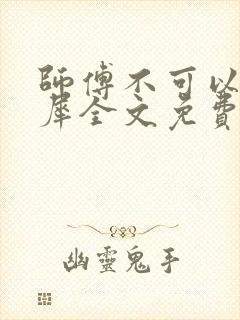 師傅不可以
犀全文免費
幽靈鬼手